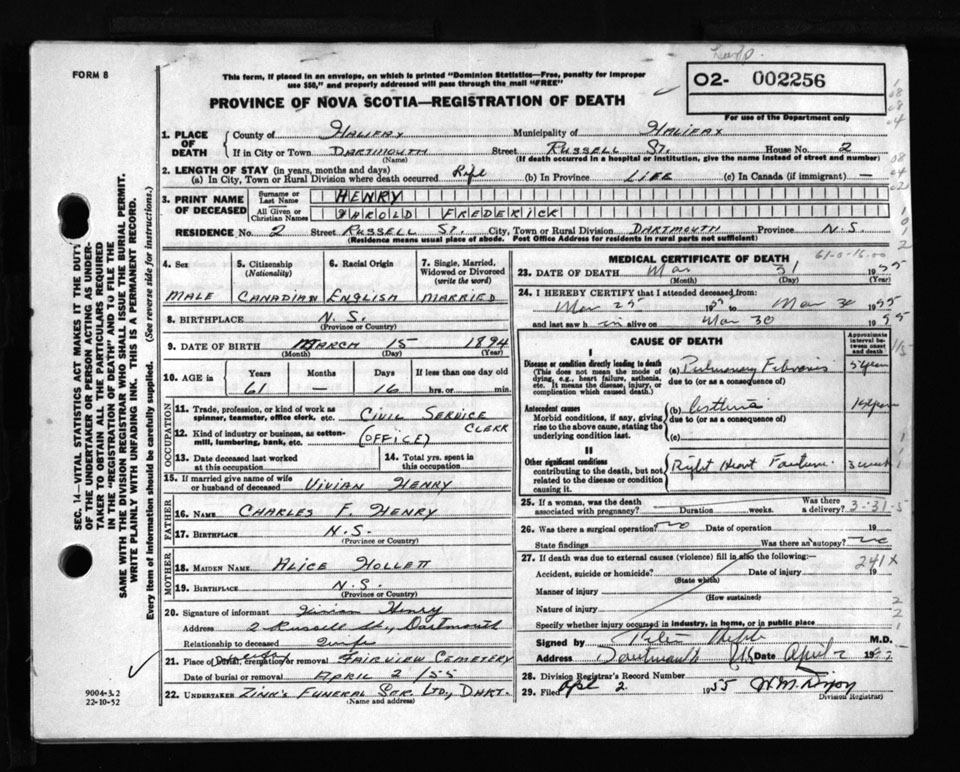 FORM 8
This form, if placed in an envelope, on which is printed "Dominion Statistics—Free, penalty for improper
use $50," and properly addressed will pass through the mail "FREE"
O2- 002256
For use of the Department only
PROVINCE OF NOVA SCOTIA—REGISTRATION OF DEATH
1. PLACE OF DEATH County of HALIFAX Municipality of HALIFAX
If in City or Town DARTMOUTH Street RUSSELL ST. House No. 2
(Name) (If death occurred in a hospital or institution, give the name instead of street and number)
2. LENGTH OF STAY (in years, months and days)
(a) In City, Town or Rural Division where death occurred Life (b) In Province LIFE (c) In Canada (if immigrant) —
3. PRINT NAME OF DECEASED Surname or Last Name HENRY
All Given or Christian Names HAROLD FREDERICK
RESIDENCE No. 2 Street RUSSELL ST. City, Town or Rural Division DARTMOUTH Province N.S.
(Residence means usual place of abode. Post Office Address for residents in rural parts not sufficient)
4. Sex MALE
5. Citizenship (Nationality) CANADIAN
6. Racial Origin ENGLISH
7. Single, Married, Widowed or Divorced (write the word) MARRIED
8. BIRTHPLACE N.S.
(Province or Country)
9. DATE OF BIRTH MARCH 15 1894
(Month) (Day) (Year)
10. AGE IS Years 61 Months — Days 16 If less than one day old hrs. or min.
OCCUPATION
11. Trade, profession, or kind of work as spinner, teamster, office clerk, etc. CIVIL SERVICE CLERK
12. Kind of industry or business, as cotton-mill, lumbering, bank, etc. (OFFICE)
13. Date deceased last worked at this occupation
14. Total yrs. spent in this occupation
15. If married give name of wife or husband of deceased VIVIAN HENRY
FATHER
16. NAME CHARLES F. HENRY
17. BIRTHPLACE N.S.
(Province or Country)
MOTHER
18. MAIDEN NAME ALICE HOLLETT
19. BIRTHPLACE N.S.
(Province or Country)
20. Signature of informant Vivian Henry
Address 2 Russell St., Dartmouth
Relationship to deceased Wife
21. Place of burial, cremation or removal FAIRVIEW CEMETERY
Date of burial or removal APRIL 2/55
22. UNDERTAKER ZINK'S FUNERAL SER. LTD., DART.
(Name and address)
MEDICAL CERTIFICATE OF DEATH
61-0-16-00
23. DATE OF DEATH Mar 31 1955
(Month) (Day)
24. I HEREBY CERTIFY that I attended deceased from:
Mar 25 1955 to Mar 30 1955
and last saw him alive on Mar 30 1955
CAUSE OF DEATH
Approximate interval between onset and death
I
Disease or condition directly leading to death
(This does not mean the mode of dying, e.g., heart failure, asthenia, etc. It means the disease, injury, or complication which caused death.)
(a) Pulmonary Fibrosis
due to (or as a consequence of)
Antecedent causes
Morbid conditions, if any, giving rise to the above cause, stating the underlying condition last.
(b) asthma
due to (or as a consequence of)
(c)
II
Other significant conditions
contributing to the death, but not related to the disease or condition causing it.
Right Heart Failure 3 weeks
25. If a woman, was the death associated with pregnancy? Duration weeks. Was there a delivery?
3-31-5
26. Was there a surgical operation? no Date of operation 19
State findings Was there an autopsy? no
27. If death was due to external causes (violence) fill in also the following:
241x
Accident, suicide or homicide? Date of injury 19
(State which)
Manner of injury
(How sustained)
Nature of injury
Specify whether injury occurred in industry, in home, or in public place
Signed by M.D.
Address Dartmouth NS Date April 2 1955
28. Division Registrar's Record Number
29. Filed Apl 2 1955 W.M. Dixon
(Division Registrar)
SEC. 14—VITAL STATISTICS ACT MAKES IT THE DUTY
OF THE UNDERTAKER OR PERSON ACTING AS UNDER-
TAKER TO OBTAIN ALL THE PARTICULARS REQUIRED
IN THE "REGISTRATION OF DEATH" AND TO FILE THE
SAME WITH THE DIVISION REGISTRAR WHO SHALL ISSUE THE BURIAL PERMIT.
WRITE PLAINLY WITH UNFADING INK. THIS IS A PERMANENT RECORD.
Every item of information should be carefully supplied. (See reverse side for instructions.)
9004-3.2
22-10-52